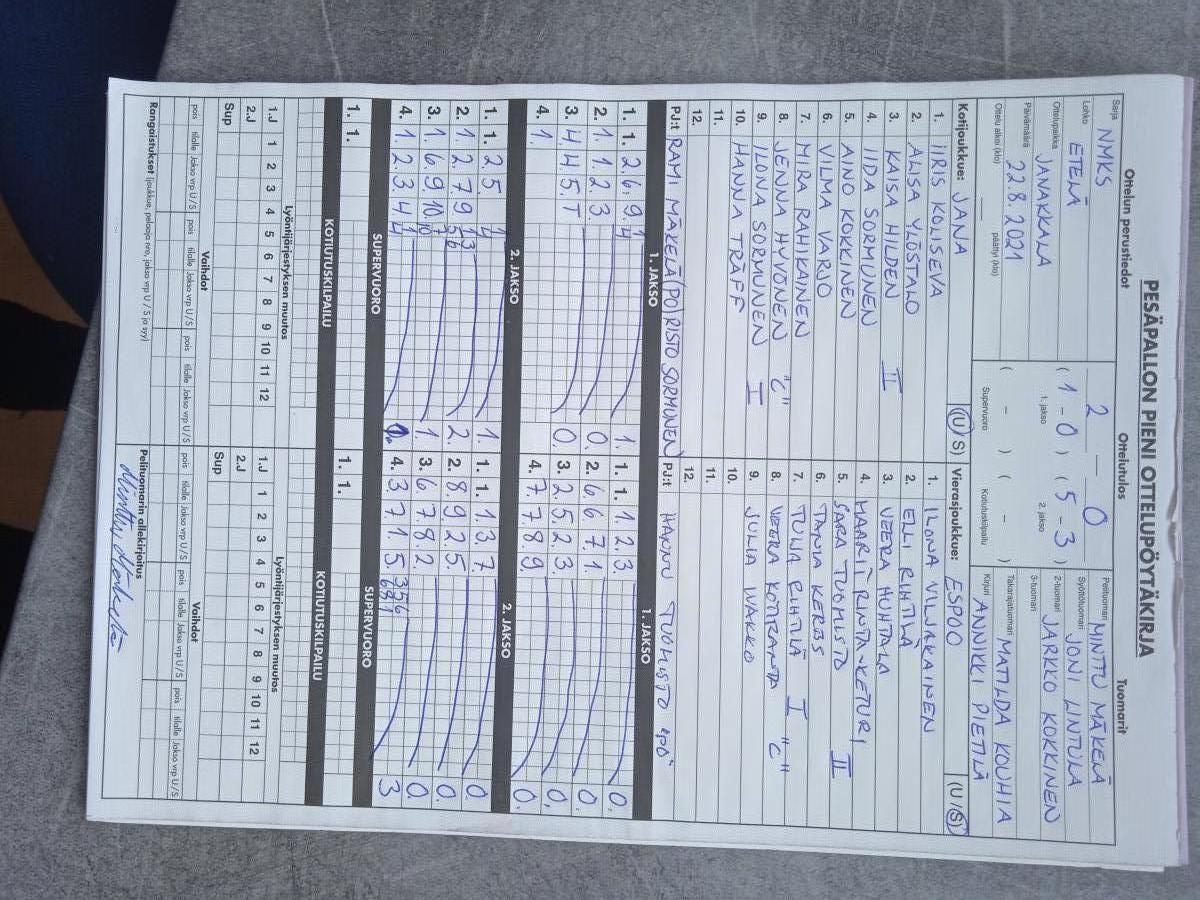 PESÄPALLON PIENI OTTELUPÖYTÄKIRJA
Ottelun perustiedot
Ottelutulos
Tuomarit
Sarja NMKS
Lohko ETELÄ
Ottelupaikka JANAKKALA
Päivämäärä 22.8.2021
Ottelu alkoi (klo) päättyi (klo)
2 – 0
( 1 - 0 ) ( 5 - 3 )
1. jakso 2. jakso
( – ) ( – )
Supervuoro Kotiutuskilpailu
Pelituomari MINTTU MÄKELÄ
Syöttötuomari JONI LINTULA
2-tuomari JARKKO KOKKINEN
3-tuomari
Takarajatuomari MATILDA KOUHIA
Kirjuri ANNIKKI PIETILÄ
Kotijoukkue: JANA (U/S)
1. IIRIS KOLISEVA
2. ALISA YLÖSTALO
3. KAISA HILDEN II
4. IIDA SORMUNEN
5. AINO KOKKINEN
6. VILMA VARJO
7. MIRA RAHIKAINEN
8. JENNA HYVÖNEN "C"
9. ILONA SORMUNEN I
10. HANNA TRÄFF
11.
12.
PJ:t RAMI MÄKELÄ (PO) RISTO SORMUNEN
Vierasjoukkue: ESPOO (U/S)
1. ILONA VILJAKAINEN
2. ELLI RIHTILÄ
3. VEERA HUHTALA
4. MAARIT RINTA-KETURI
5. SARA TUOMISTO II
6. TANJA KERES
7. TUIJA RIHTILÄ I
8. VEERA KOTIRANTA "C"
9. JULIA IVAKKO
10.
11.
12.
PJ:t HANNU TUOMISTO
1. JAKSO
1. 1. 2. 6. 9. 1 4 1.
2. 1. 1. 2. 3. 0.
3. 4 4. 5. 7 0.
4. 1.
1. JAKSO
1. 1. 1. 2. 3. 0.
2. 6. 6. 7. 1. 0.
3. 2. 5. 2. 3. 0.
4. 7. 7. 8. 9. 0.
2. JAKSO
1. 1. 2. 5. 1.
2. 1. 2. 7. 9. 2.
3. 1. 6. 9. 10. 1.
4. 1. 2. 3. 4.
2. JAKSO
1. 1. 1. 3. 7. 0.
2. 8. 9. 2. 5. 0.
3. 6. 7. 8. 2. 0.
4. 3. 7. 1. 5. 356 681 3
SUPERVUORO
SUPERVUORO
KOTIUTUSKILPAILU
KOTIUTUSKILPAILU
1. 1.
1. 1.
Lyöntijärjestyksen muutos
1.J 1 2 3 4 5 6 7 8 9 10 11 12
2.J
Sup
Lyöntijärjestyksen muutos
1.J 1 2 3 4 5 6 7 8 9 10 11 12
2.J
Sup
Vaihdot
pois tilalle Jakso vrp U/S pois tilalle Jakso vrp U/S pois tilalle Jakso vrp U/S
Vaihdot
pois tilalle Jakso vrp U/S pois tilalle Jakso vrp U/S pois tilalle Jakso vrp U/S
Rangaistukset (joukkue, pelaaja nro, jakso vrp U / S ja syy)
Pelituomarin allekirjoitus